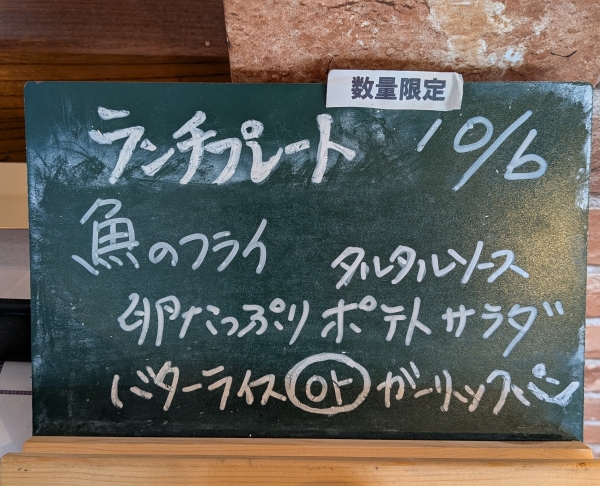 数量限定
ランチプレート 10/6
魚のフライ タルタルソース
卵たっぷりポテトサラダ
バターライス or ガーリックパン